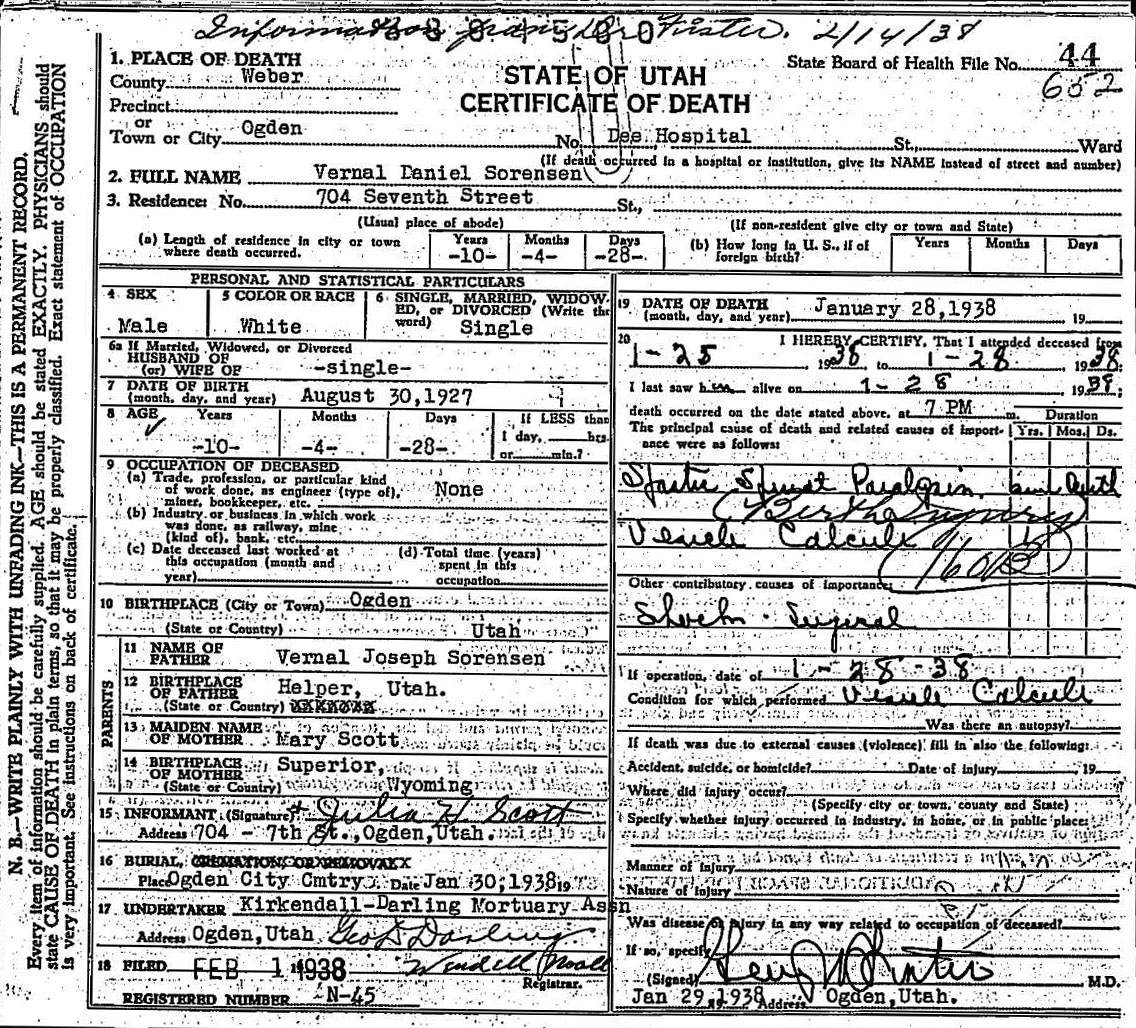 Information from Dr. 2/14/38
State Board of Health File No. 44
652
STATE OF UTAH
CERTIFICATE OF DEATH
1. PLACE OF DEATH
County Weber
Precinct
or
Town or City Ogden No. Dee Hospital St., Ward
(If death occurred in a hospital or institution, give its NAME instead of street and number)
2. FULL NAME Vernal Daniel Sorensen
3. Residence: No. 704 Seventh Street St.,
(Usual place of abode) (If non-resident give city or town and State)
(a) Length of residence in city or town where death occurred. Years -10- Months -4- Days -28-
(b) How long in U. S., if of foreign birth? Years Months Days
PERSONAL AND STATISTICAL PARTICULARS
4 SEX Male
5 COLOR OR RACE White
6 SINGLE, MARRIED, WIDOWED, or DIVORCED (Write the word) Single
6a If Married, Widowed, or Divorced
HUSBAND OF
(or) WIFE OF -single-
7 DATE OF BIRTH
(month, day, and year) August 30,1927
8 AGE Years Months Days If LESS than
-10- -4- -28- 1 day, hrs.
or min.?
9 OCCUPATION OF DECEASED
(a) Trade, profession, or particular kind
of work done, as engineer (type of),
miner, bookkeeper, etc. None
(b) Industry or business in which work
was done, as railway, mine
(kind of), bank, etc.
(c) Date deceased last worked at
this occupation (month and
year)
(d) Total time (years)
spent in this
occupation
10 BIRTHPLACE (City or Town) Ogden
(State or Country) Utah
PARENTS
11 NAME OF
FATHER Vernal Joseph Sorensen
12 BIRTHPLACE
OF FATHER Helper, Utah.
(State or Country)
13 MAIDEN NAME
OF MOTHER Mary Scott
14 BIRTHPLACE
OF MOTHER Superior,
(State or Country) Wyoming
15 INFORMANT (Signature) Julia H Scott
Address 704 - 7th St., Ogden, Utah.
16 BURIAL, CREMATION, OR REMOVAL
Place Ogden City Cmtry Date Jan 30, 1938 19
17 UNDERTAKER Kirkendall-Darling Mortuary Assn
Address Ogden, Utah Geo D Darling
18 FILED FEB 1 1938 Wendell
Registrar.
REGISTERED NUMBER N-45
19 DATE OF DEATH
(month, day, and year) January 28,1938 19
20 I HEREBY CERTIFY, That I attended deceased from
1-25 1938 to 1-28 1938;
I last saw him alive on 1-28 1938;
death occurred on the date stated above, at 7 PM m. Duration
The principal cause of death and related causes of import- Yrs. Mos. Ds.
ance were as follows:
Spastic Paralysis since birth
(Birth Injury)
Vesicle Calculi
160B
Other contributory causes of importance:
Shock - Surgical
If operation, date of 1-28-38
Condition for which performed Vesicle Calculi
Was there an autopsy?
If death was due to external causes (violence) fill in also the following:
Accident, suicide, or homicide? Date of injury 19
Where did injury occur?
(Specify city or town, county and State)
Specify whether injury occurred in industry, in home, or in public place:
Manner of injury
Nature of injury
Was disease or injury in any way related to occupation of deceased?
If so, specify
(Signed) M.D.
Jan 29, 1938 Address Ogden, Utah.
N. B.—WRITE PLAINLY WITH UNFADING INK—THIS IS A PERMANENT RECORD.
Every item of information should be carefully supplied. AGE should be stated EXACTLY. PHYSICIANS should
state CAUSE OF DEATH in plain terms, so that it may be properly classified. Exact statement of OCCUPATION
is very important. See instructions on back of certificate.